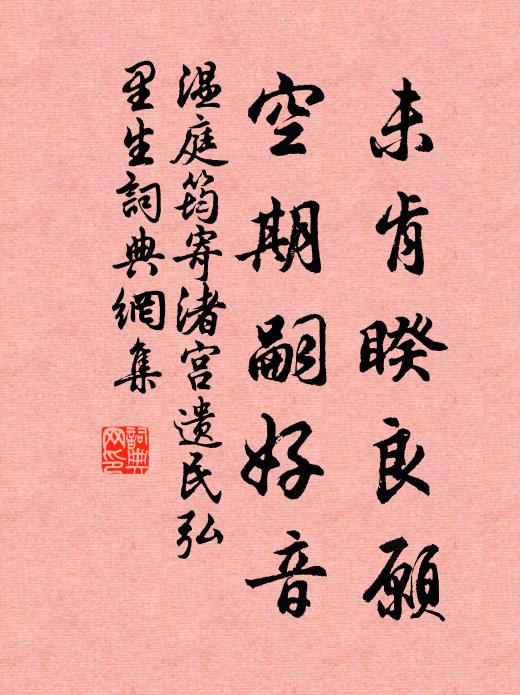 未肯睽良願
空期嗣好音
温庭筠寄渚宫遗民弘
里生詞典網集
詞典
网印